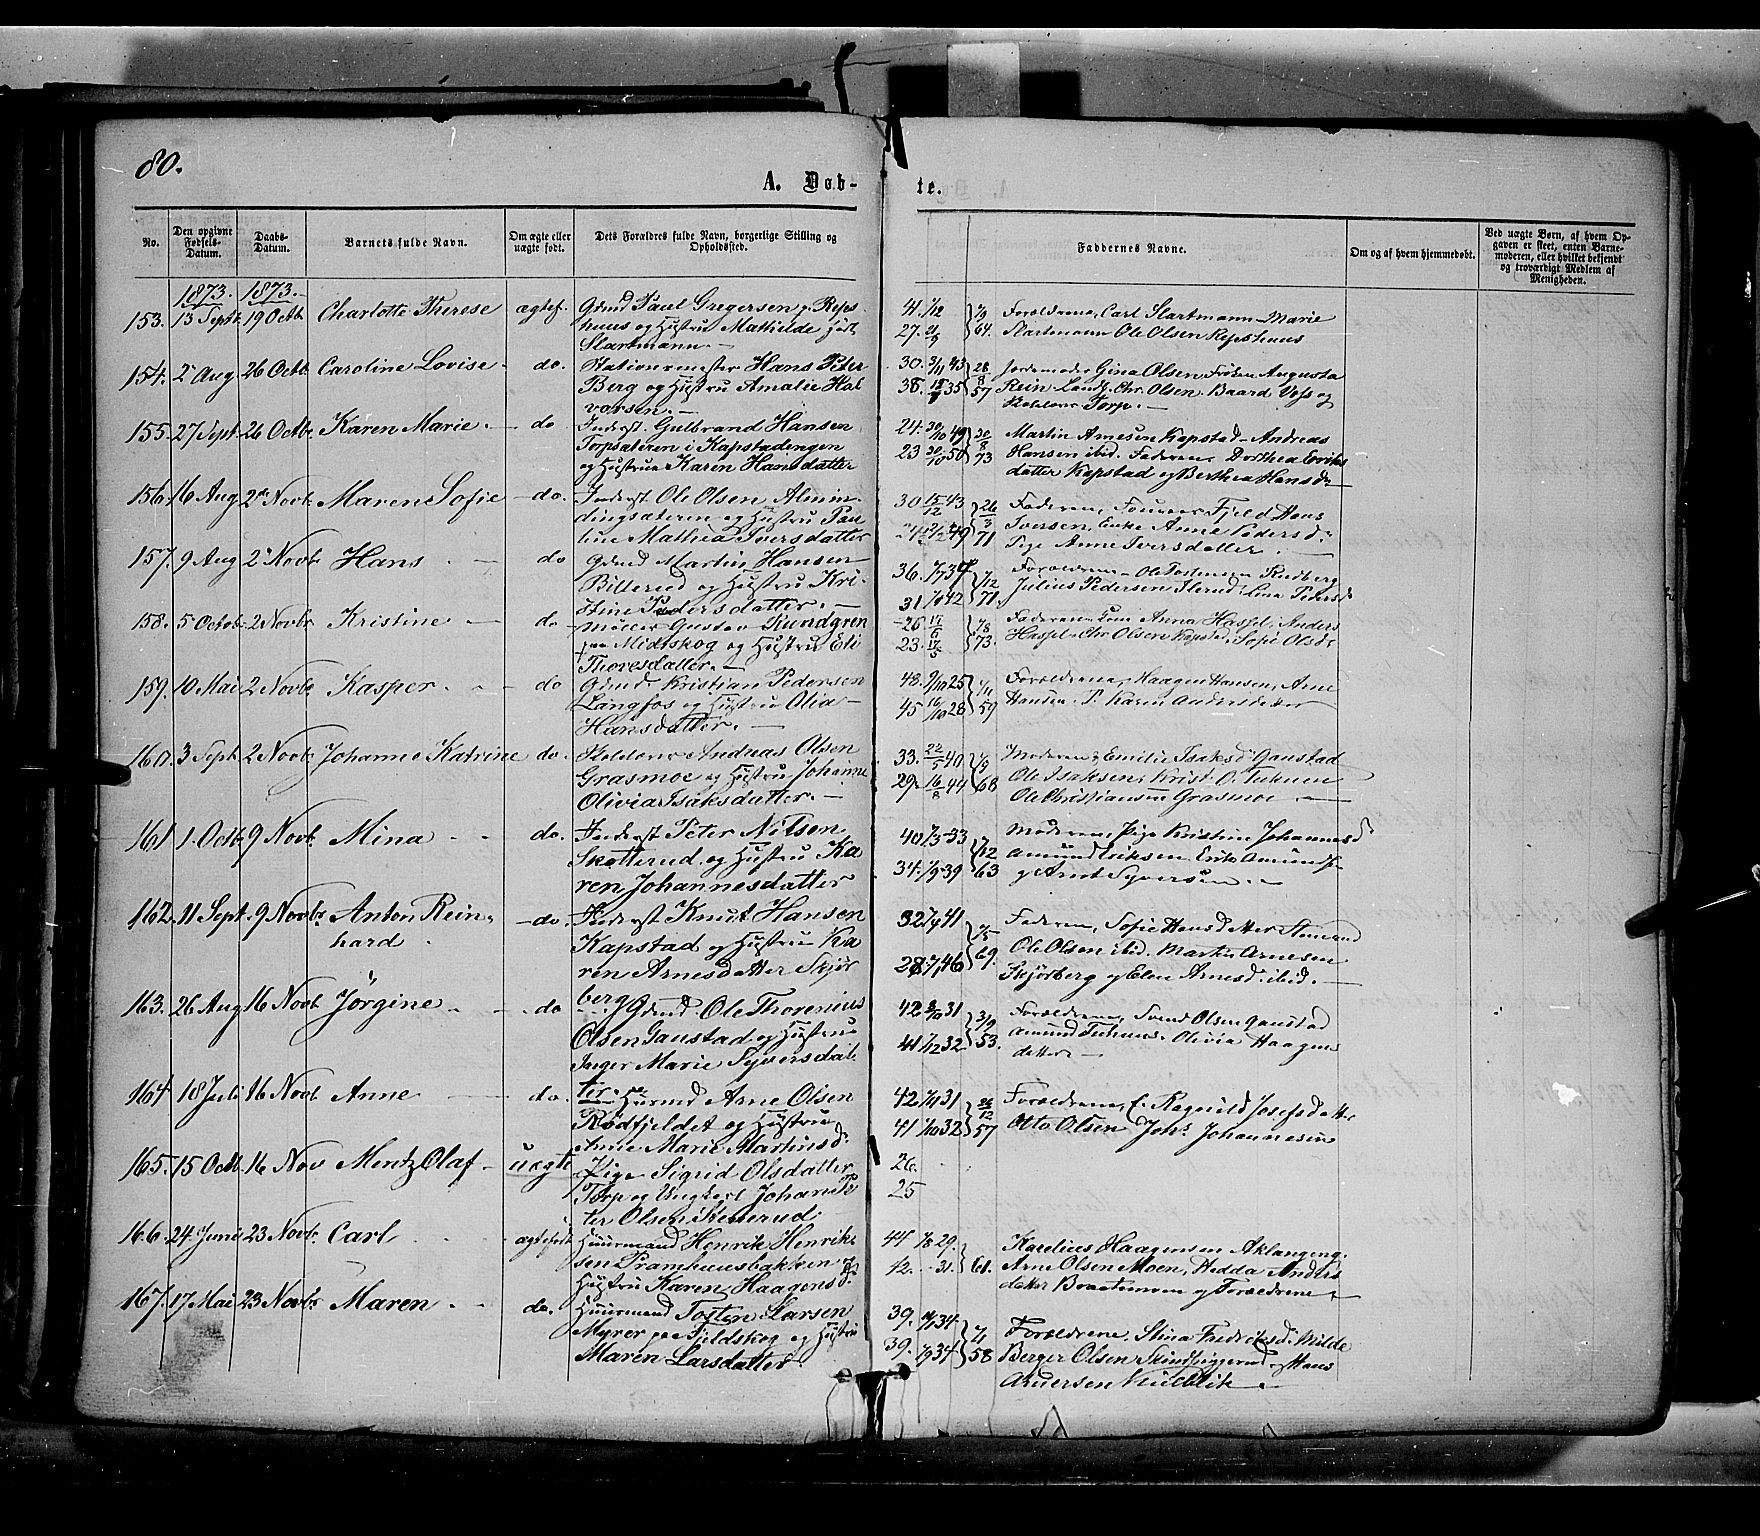 80.
A. Døb-
te.
No.
Den opgivne Fødsels-Datum.
Daabs-Datum.
Barnets fulde Navn.
Om ægte eller uægte født.
Dets Forældres fulde Navn, borgerlige Stilling og Opholdsted.
Faddernes Navne.
Om og af hvem hjemmedøbt.
Ved uægte Børn, af hvem Op-
gaven er skeet, enten Barne-
moderen, eller hvilket bekjendt
og troværdigt Medlem af
Menigheden.
1873. 1873.
153. 13 Septb 19 Octb Charlotte Therese ægtef. Grmd Paul Gregersen Reps-
huus og Hustru Mathilde
Slartmann.
41. 1/12
27. 64. Forældrene, Carl Slartmann Marie
Slartmann Ole Olsen Repshuus
154. 2 Aug 26 Octb Caroline Lovise do. Stationsmester Hans Peter
Berg og Hustru Amalie Hal
vorsen.
30. 31/11 43 28/8
38. 35 57 Jordemoder Gina Olsen, Frøken Augusta
Rein Landh. Chr. Olsen. Baard Voss og
Torp.
155. 27 Sept. 26 Octb. Karen Marie. do Inderst Gulbrand Hansen
Torpsæteren i Kapstadengen
og Hustru Karen Hansdatter
24. 30/10 49 20/8
23 30/10 50 73 Martin Arnesen Kapstad Andreas
Hansen ibid. Faderen, Dorthea Eriks
datter Kapstad og Berthea Hansd.
156. 16 Aug 2 Novb. Maren Sofie do. Inderst Ole Olsen Almin-
dingsæteren og Hustru Pau
line Mathea Iversdatter
30 15/12 43 26/3
49 71 Faderen, Fjeld Hans
Iversen, Enke Anne Pedersd.
Pige Anne Iversdatter.
157. 9 Aug 2 Novb Hans do Grmd Martin Hansen
Billerud og Hustru Kri-
stine Pedersdatter.
36. 37 7/12
31 42 71. Forældrene Ole Tostensen Rudberg
Julius Pedersen Lina Pedersd
158. 5 Octob. 2 Novbr Kristine do Møller Gustav Ljundgren
paa Midtskog og Hustru Eli
Thoresdatter.
26. 17/6 7/8
23. 17/5 73. Faderen, Anna Haspel, Anders
Haspel Chr Olsen Kapstad, Sofie Olsdr
159. 10 Mai 2 Novbr Kasper. do Grmd Kristian Pedersen
Langfos og Hustru Olia
Hansdatter.
48. 9/10 25 7/11
45 16/10 28 59 Forældrene, Haagen Hansen, Arne
Hansen P. Karen Andersdatter
160. 3 Sept 2 Novbr Johanne Katrine do. Andreas Olsen
Grasmoe og Hustru Johanne
Olivia Isaksdatter.
33. 22/5 40
29. 16/8 44 68 Moderen, Emilie Isaksd. Gaustad
Ole Isaksen, Krist. O.
Ole Christiansen Grasmoe
161 1 Octb. 9 Novb. Mina do. Inderst Peter Nilsen
Skotterud og Hustru Ka
ren Johannesdatter
40 7/3 33 7/12
34. 1/9 39 63 Moderen, Pige Kristine Johannesd
Amund Eriksen, Erik
og Arne Syversen
162. 11 Sept. 9 Novbr. Anton Rein-
hard do. Inderst Knut Hansen
Kapstad og Hustru Ka
ren Arnesdatter Skjør
berg
32 41 7/5
28 46 69. Faderen, Sofie Hansdatter
Ole Olsen ibid. Martin Arnesen
Skjørberg og Elen Arnesd. ibid.
163. 26 Aug 16 Novb Jörgine do Grmd. Ole Thorenius
Olsen Gaustad og Hustru
Inger Marie Syversdat
ter.
42 31 3/9
41 1/12 32 53. Forældrene, Svend Olsen Gaustad
Amund Olivia Haagens
datter
164 18 Juli 16 Novb. Anne do. Huusmd Arne Olsen
Rödfjeldet og Hustru
Anne Marie Martinsd.
42. 31 26/12
41 1/10 32 57 Forældrene, E. Ragnild Josefsdatter
Otto Olsen Johs. Johannesen
165. 15 Octb. 16 Nov Mentz Olaf uægte Pige Sigrid Olsdatter
Torp og Ungkarl Johan Pe
ter Olsen Stenerud
26.
25
166. 24 Juni 23 Novb. Carl ægtefødt Huusmand Henrik Henrik
sen Pramhuusbakken og
Hustru Karen Haagensd.
44 1/8 29.
42. 31. 61. Karelius Haagensen Aklangeng.
Arne Olsen Moen, Hedda Anders
datter Braatemoen og Forældrene
167. 17 Mai 23 Novbr Maren do. Huusmand Tosten Larsen
Myrer paa Fjeldskog og Hustru
Maren Larsdatter
39. 34
39. 1/9 34 58 Forældrene, Stina Fredriksd. Milde
Berger Olsen og Hans
Andersen Kneblik